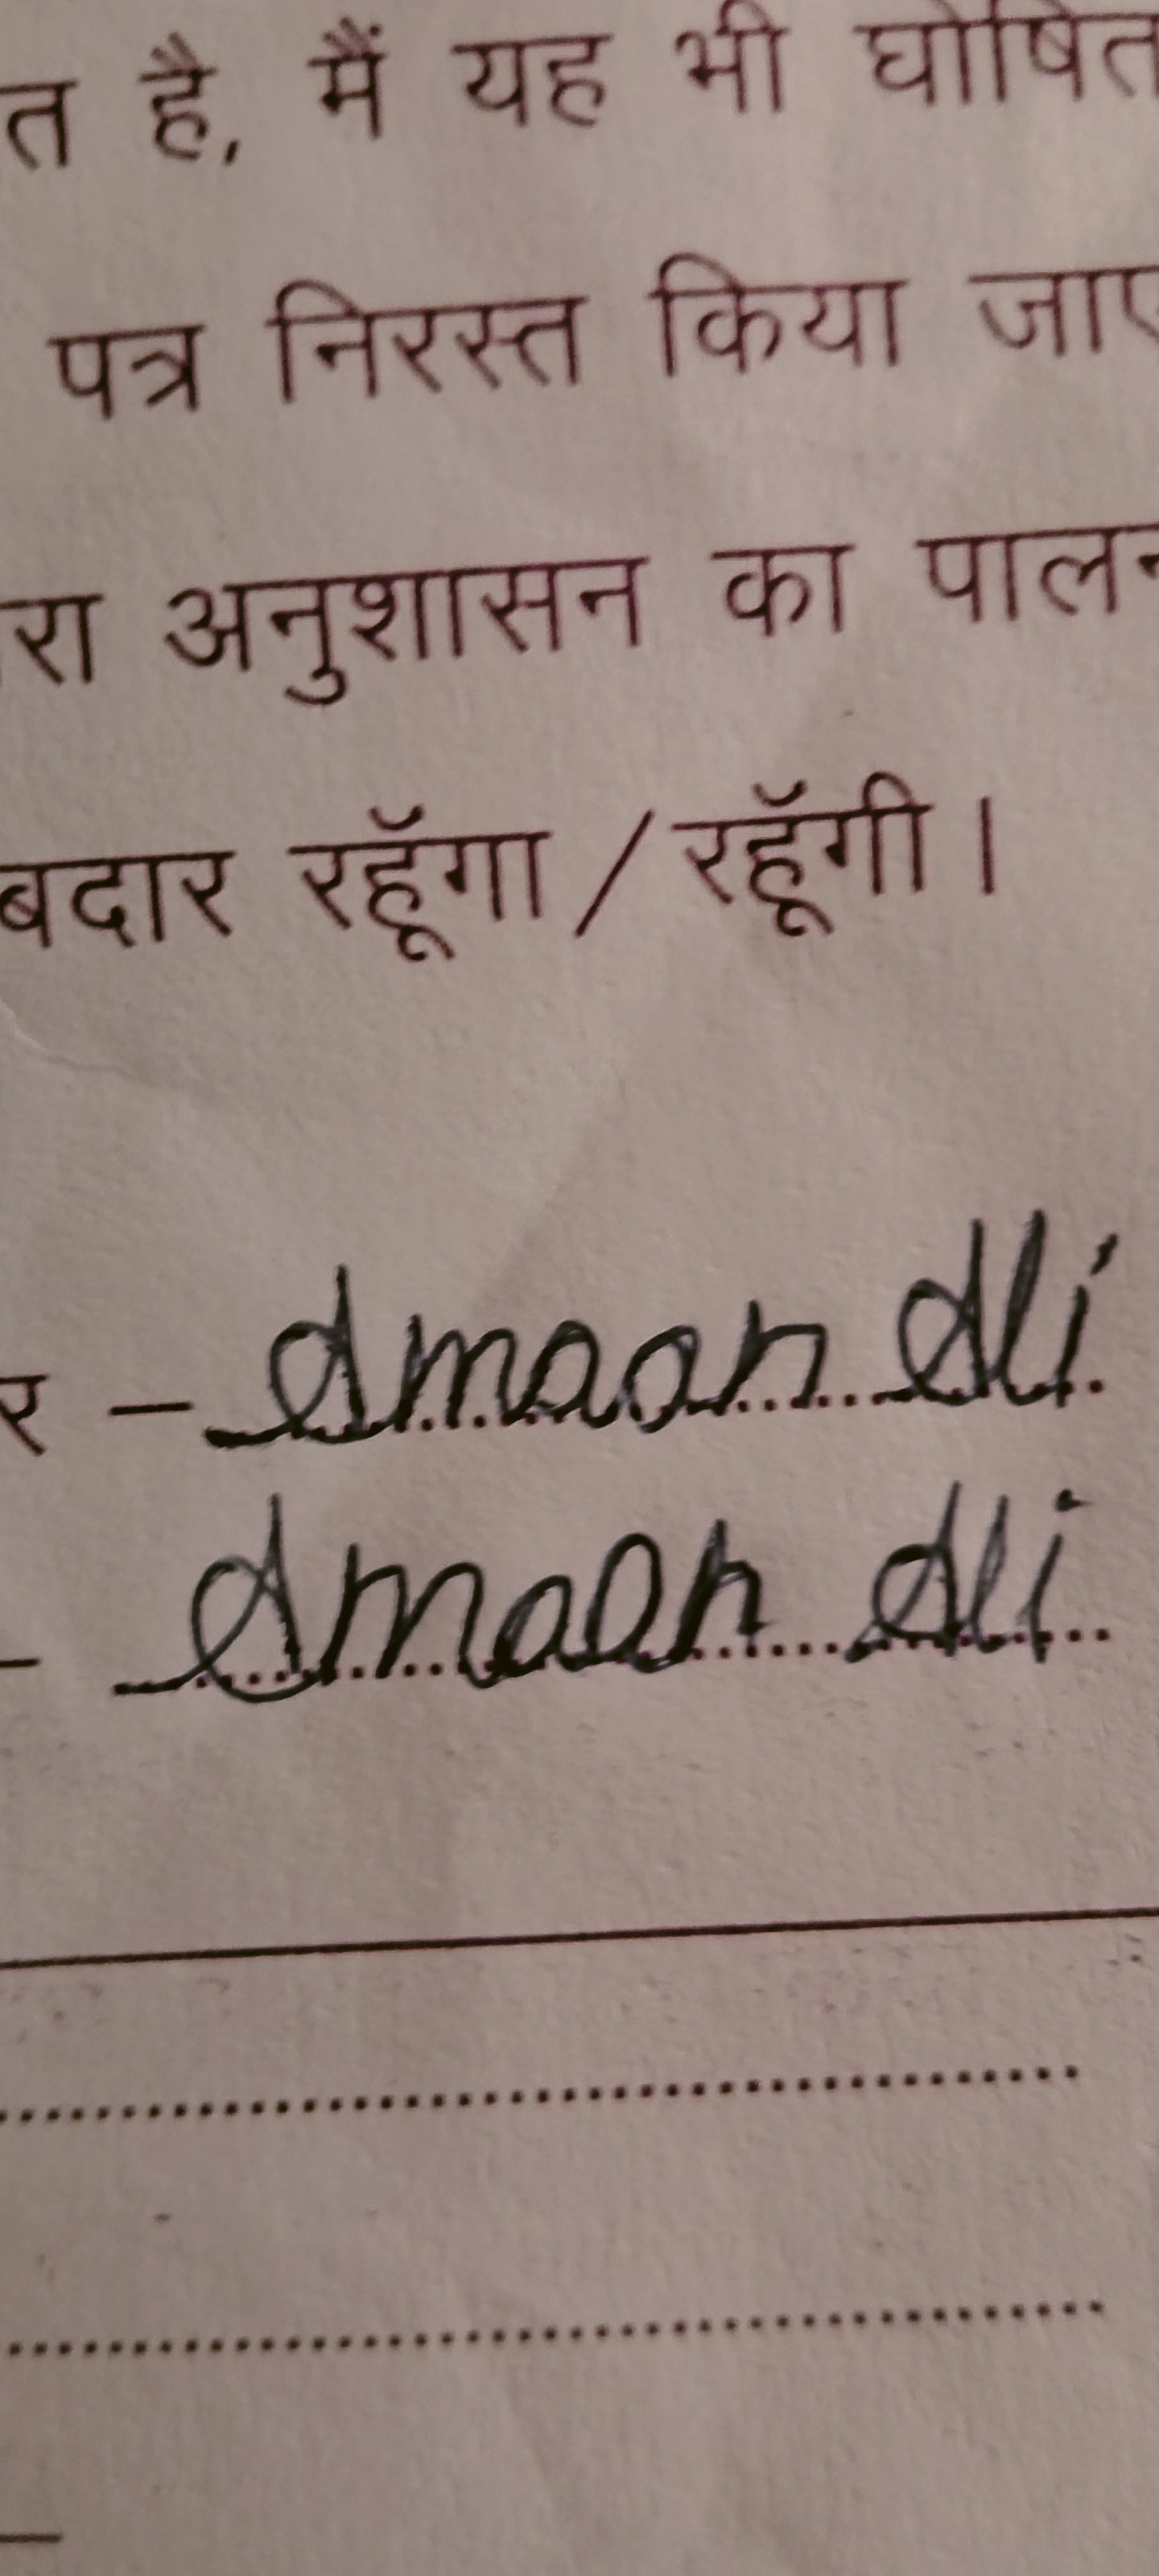 त है, मैं यह भी घोषित
पत्र निरस्त किया जाए
रा अनुशासन का पालन
बदार रहूँगा / रहूँगी ।
र – Amaan Ali
– Amaan Ali